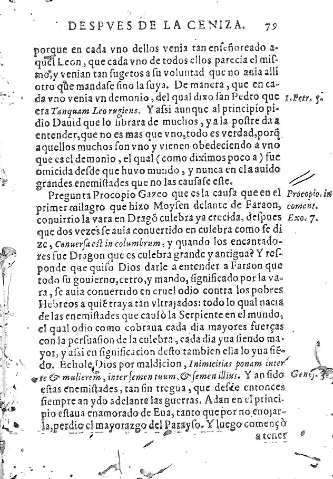 DESPVES DE LA CENIZA. 79
porque en cada vno dellos venia tan enseñoreado a-
quel Leon, que cada vno de todos ellos parecia el mis-
mo, y venian tan sugetos a su voluntad que no auia alli
otro que mandase sino la suya. De manera, que en ca-
da vno venia vn demonio, del qual dixo san Pedro que
era Tanquam Leo rugiens. Y assi aunque al principio pi-
dio Dauid que lo librara de muchos, y a la postre da a
entender, que no es mas que vno, todo es verdad, porq̃
aquellos muchos son vno y vienen obedeciendo à vno
que es el demonio, el qual (como diximos poco a) fue
omicida desde que huvo mundo, y nunca en el a auido
grandes enemistades que no las causase este.
Pregunta Procopio Gazeo que es la causa que en el
primer milagro que hizo Moysen delante de Faraon,
conuirtio la vara en Dragō culebra ya crecida, despues
que dos vezes se auia conuertido en culebra como se di
ze, Conuersa est in columbrum: y quando los encantado-
res fue Dragon que es culebra grande y antigua? Y res-
ponde que quiso Dios darle a entender a Faraon que
todo su gouierno, cetro, y mando, significado por la va-
ra, se auia conuertido en cruel odio contra los pobres
Hebreos a quiē traya tan vltrajados: todo lo qual nacia
de las enemistades que causò la Serpiente en el mundo,
el qual odio como cobraua cada dia mayores fuerças
con la persuasion de la culebra, cada dia yua siendo ma-
yor, y assi en significacion desto tambien ella lo yua siē-
do. Echole Dios por maldicion, Inimicitias ponam inter
te & mulierem, inter semen tuum, & semen illius. Y an sido
estas enemistades, tan sin tregua, que desde entonces
siempre an ydo adelante las guerras. Adan en el princi-
pio estaua enamorado de Eua, tanto que por no enojar-
la, perdio el mayorazgo del Parayso. Y luego començò
a tener
1. Petr. 5.
Procopio. in
coment.
Exo. 7.
Genes. 3.